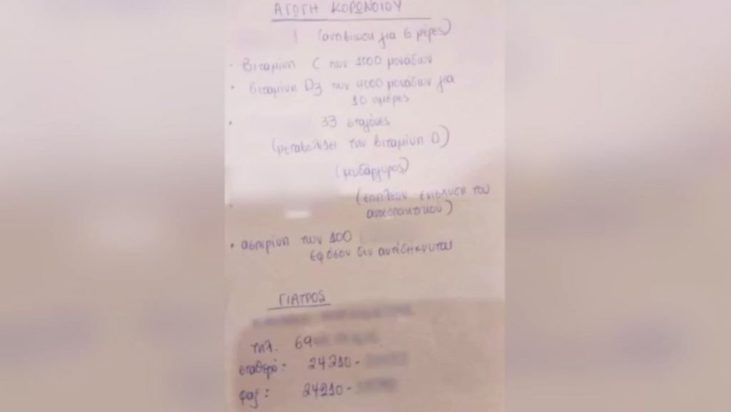 ΑΓΩΓΗ ΚΟΡΩΝΟΙΟΥ
(αντιβίωση για 6 μέρες)
• Βιταμίνη C των 1000 μονάδων
• Βιταμίνη D3 των 4000 μονάδων για
10 ημέρες
• 33 σταγόνες
(μεταβολίζει την βιταμίνη D)
(
(επιπλέον ενίσχυση του
ανοσοποιητικού)
• ασπιρίνη των 100
εφόσον δεν αντενδείκνυται
ΓΙΑΤΡΟΣ
τηλ. 69
σταθερό: 24210-
φαξ: 24210-